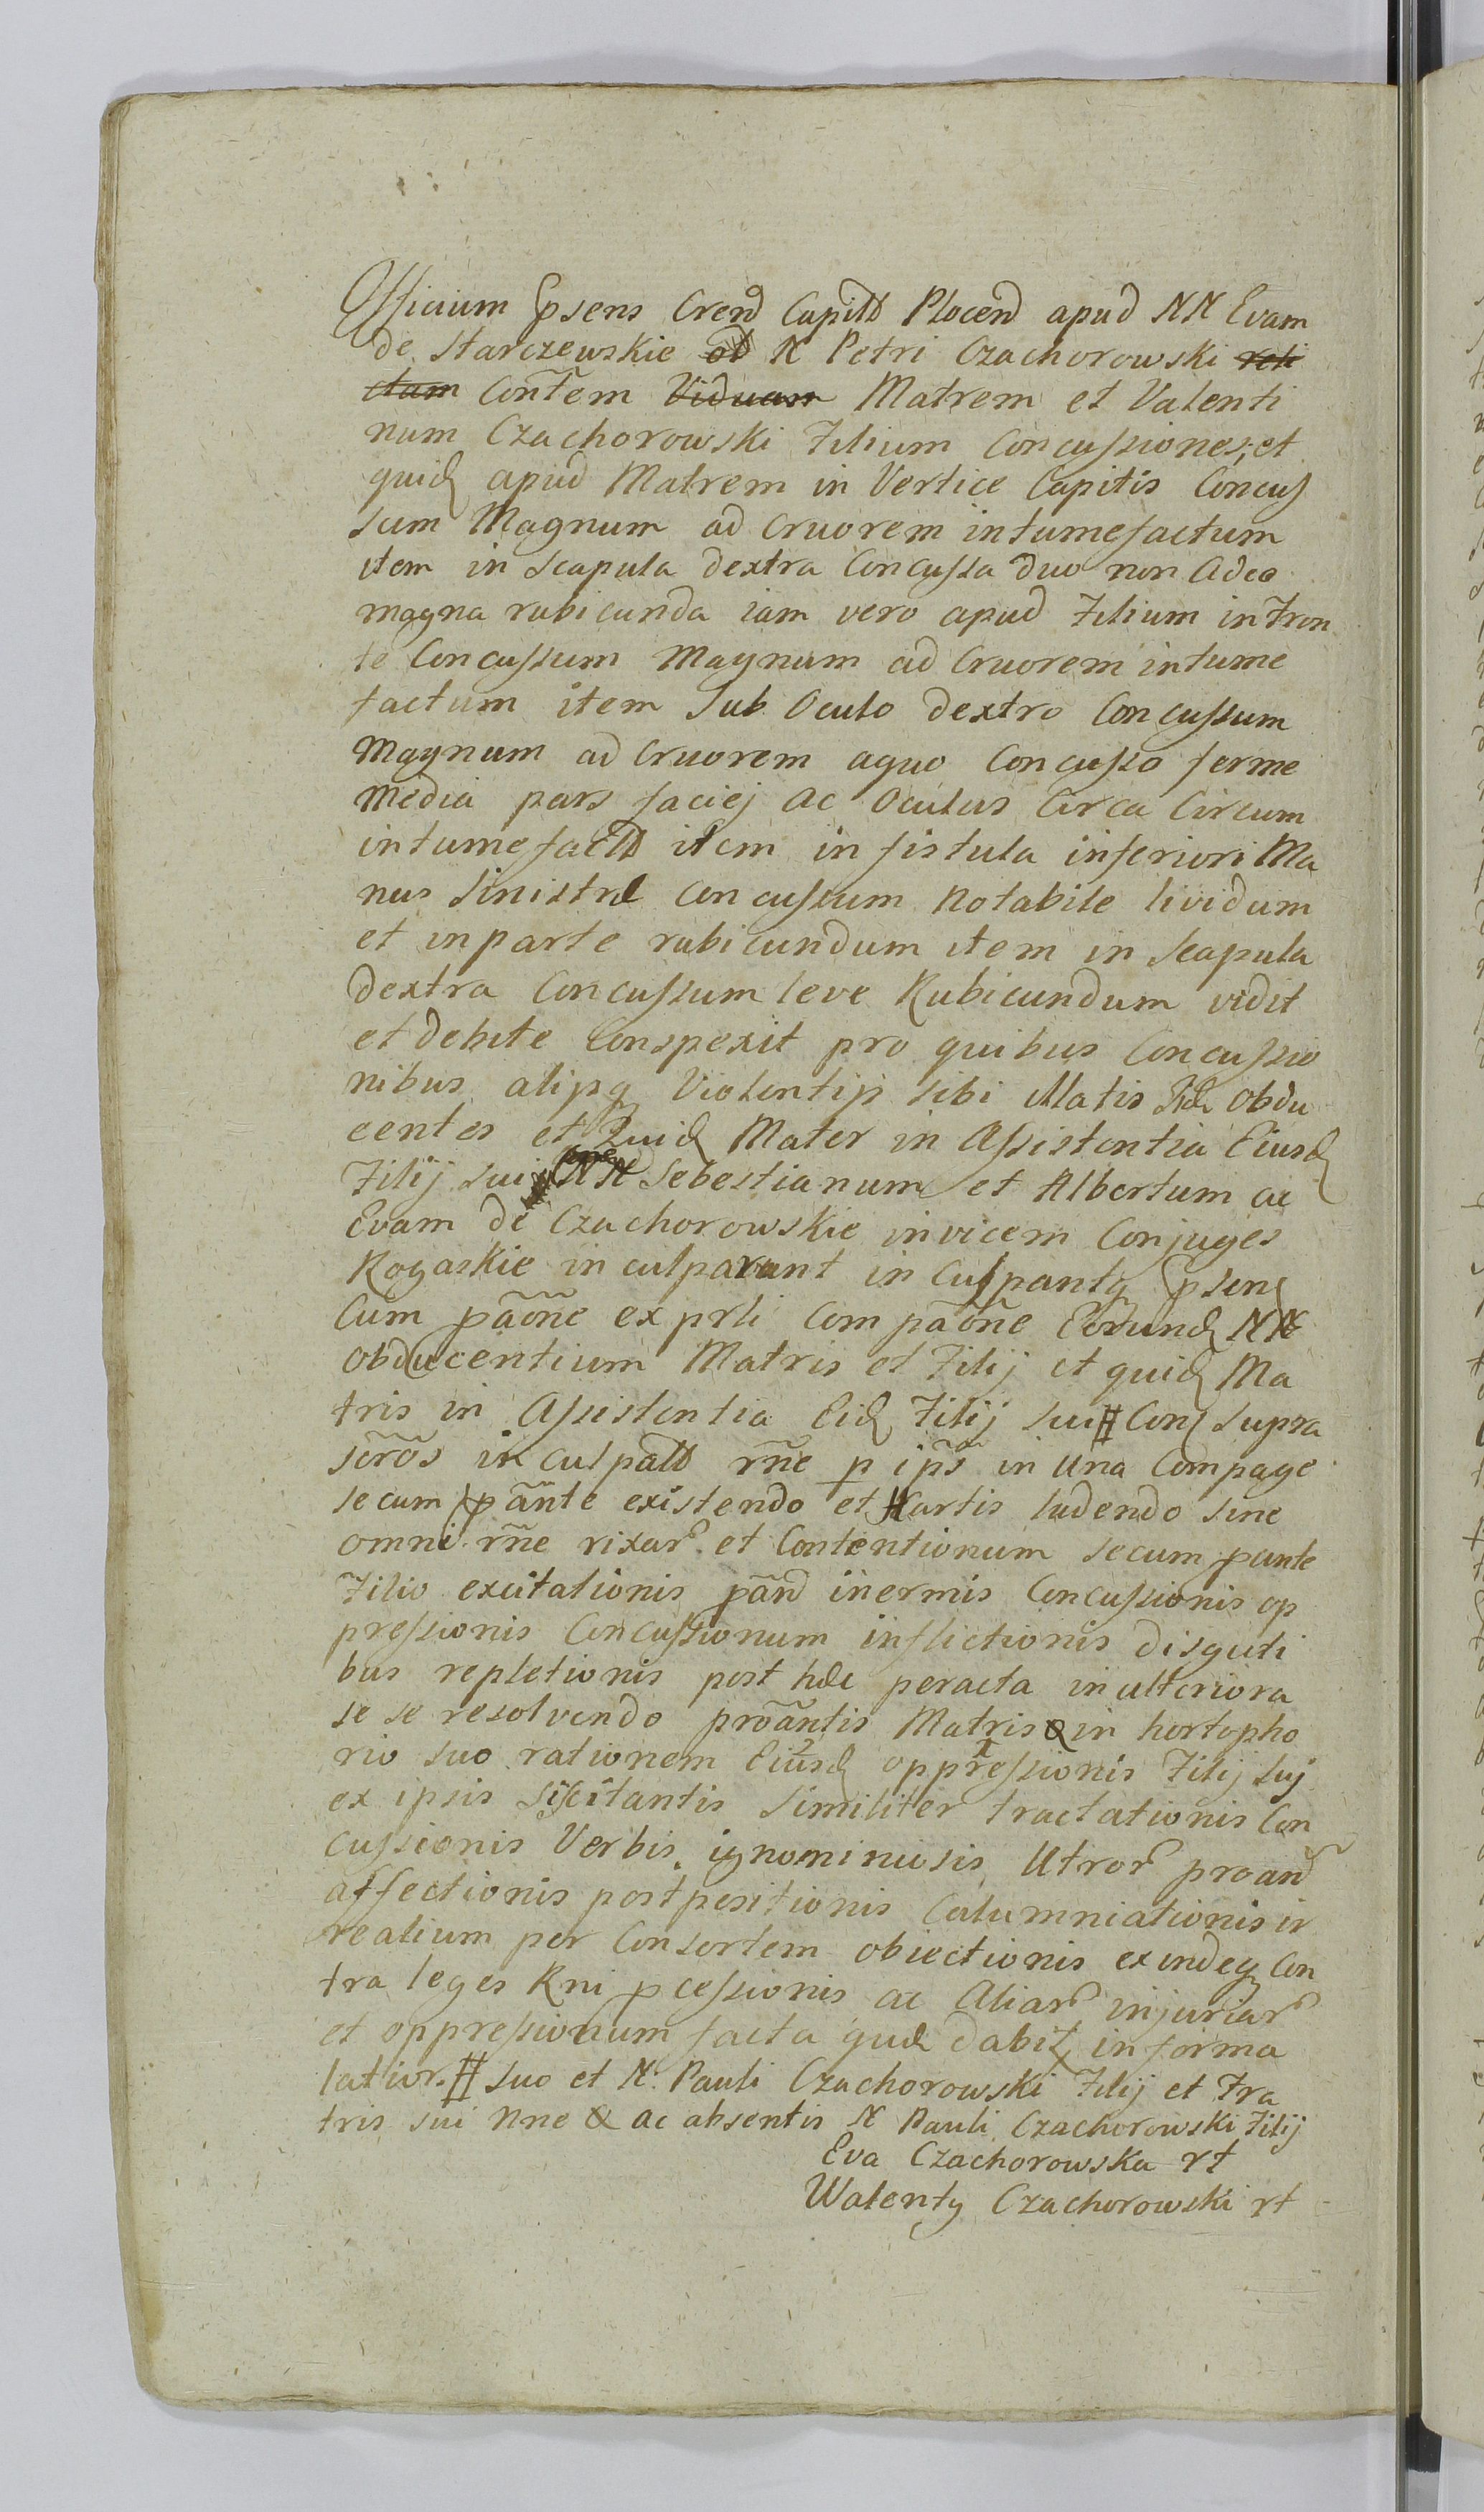 Officium psens Crend Capitd Plocend apud NN Evam
de Starczewskie N Petri Czachorowski reli
ctam Contem Viduam Matrem et Valenti
num Czachorowski Filium Concussiones, et
quid apud Matrem in Vertice Capitis Concus
sum Magnum ad cruorem intumefactum
item in Scapula dextra Concussa duo non Adeo
magna rubicunda iam vero apud Filium in Fron
te Concussum Magnum ad Cruorem intume
factum item Sub Oculo dextro Concussum
Magnum ad Cruorem aquo Concusso ferme
Media pars faciej ac Oculus Circa Circum
intumefactd item in fistula inferiori Ma
nus Sinistræ concussum Notabile lividum
et inparte rubicundum item in Scapula
dextra Concussum leve Rubicundum vidit
et debite Conspexit pro quibus Concussio
nibus alijsq Violentijs sibi illatis Obdu
centes et Quid Mater in Assistentia Eiusd
Filij sui NN Sebestianum et Albertum ac
Evam de Czachorowskie invicem Conjuges
Rogaskie inculparunt inculpantq psen
Cum paone ex prli Compaone Eorund NN
obducentium Matris et Filij et quid Ma
tris in Assistentia Eid Filij sui # Con supra
scros inculpatd rne p ips in Una Compage
secum pante existendo et Kartis ludendo sine
omni rne rixar et Contentionum secum pante
Filio excitationis pand inermis Concussionis op
pressionis Concussionum inflictionis disguti
bus repletionis post hæc peracta in ulteriora
se se resolvendo proantis Matris in hortopho
rio suo rationem Eiusd oppressionis Filij suj
ex ipsis Siscitantis Similiter tractationis Con
cussionis Verbis ignominiosis Utror proand
affectionis postpositionis Calumniationis ir
realium per Consortem obiectionis exindeq Con
tra leges Rni pcessionis ac Aliar injuriar
et oppressionum facta quæ dabit in forma
latior. # suo et N. Pauli Czachorowski Filij et Fra
tris sui Nne & ac absentis N Pauli Czachorowski Filij
Eva Czachorowska rt
Walenty Czachorowski rt